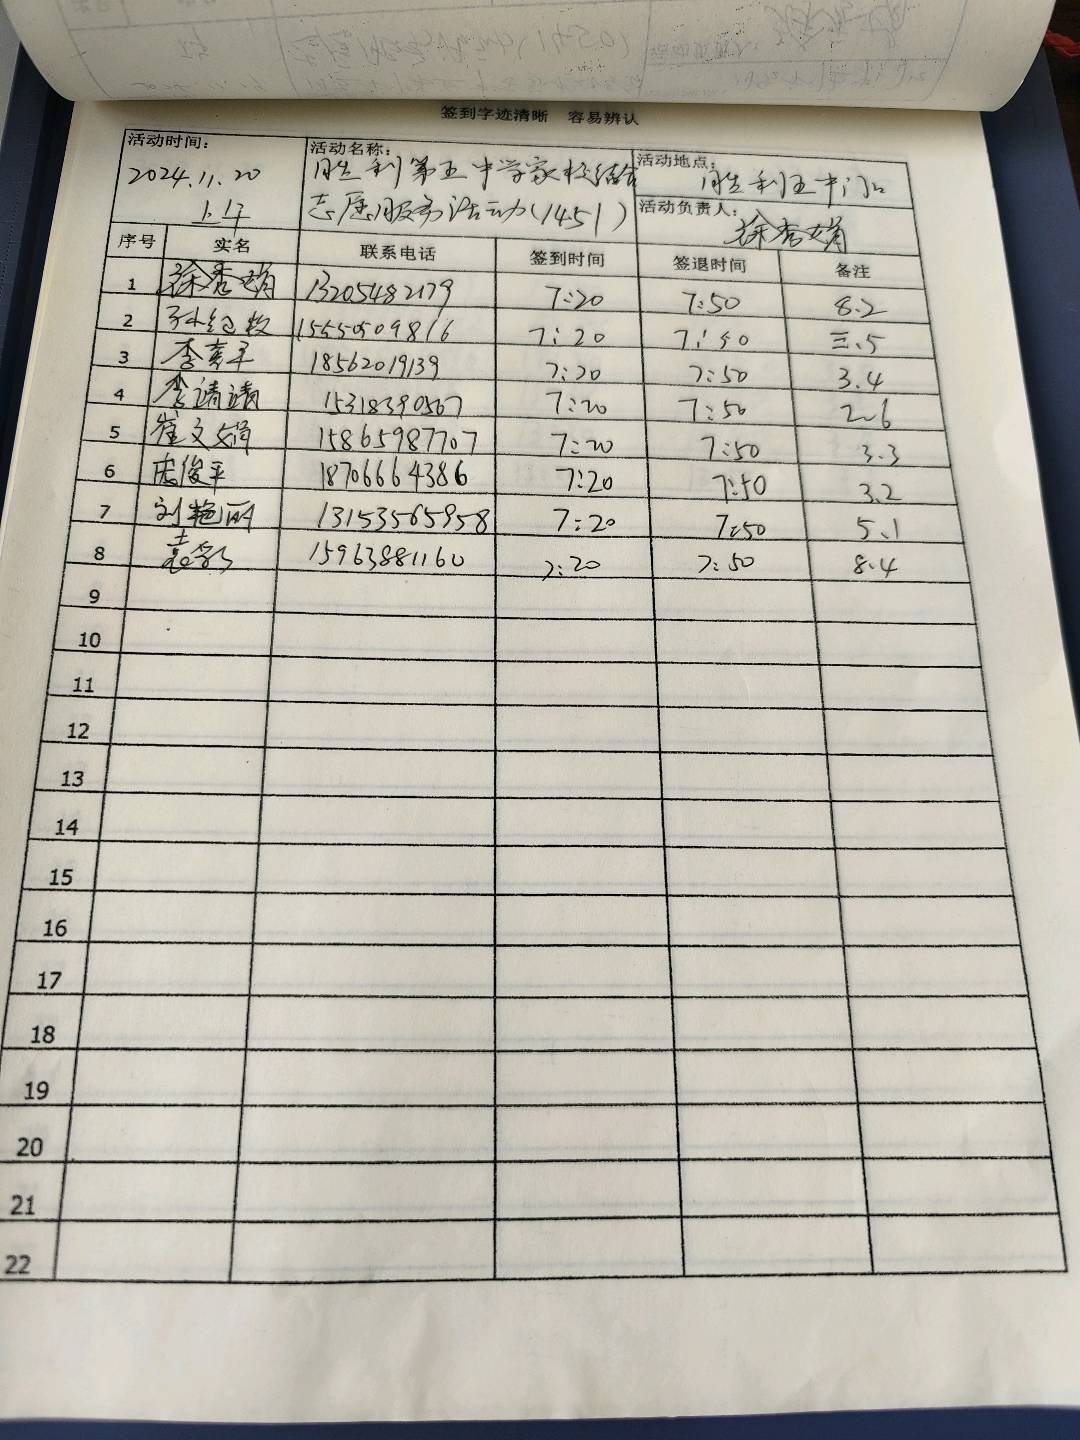 签到字迹清晰 容易辨认
活动时间: 2024.11.20 上午
活动名称: 胜利第五中学家校结合志愿服务活动(1451)
活动地点: 胜利五中门口
活动负责人: 徐秀娟
序号 实名 联系电话 签到时间 签退时间 备注
1 徐秀娟 13205482179 7:20 7:50 8.2
2 15550509816 7:20 7:50 三.5
3 18562019139 7:20 7:50 3.4
4 李请请 15318390567 7:20 7:50 2.6
5 崔文娟 15865987707 7:20 7:50 3.3
6 18706664386 7:20 7:50 3.2
7 刘艳丽 13153565958 7:20 7:50 5.1
8 袁彩 15963881160 7:20 7:50 8.4
9
10
11
12
13
14
15
16
17
18
19
20
21
22